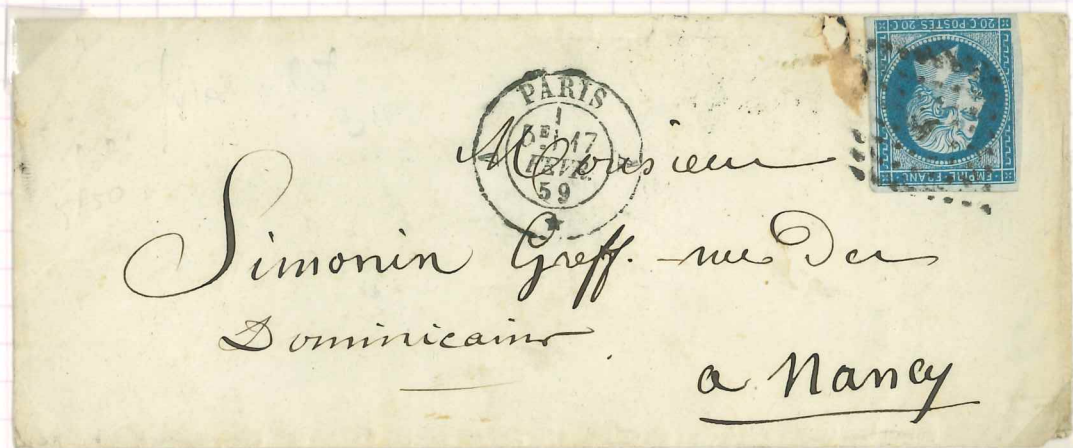 20 C POSTES 20 C
EMPIRE FRANC
PARIS
1
17
FEVR.
59
Monsieur
Simonin Greff. rue des
Dominicains
a Nancy